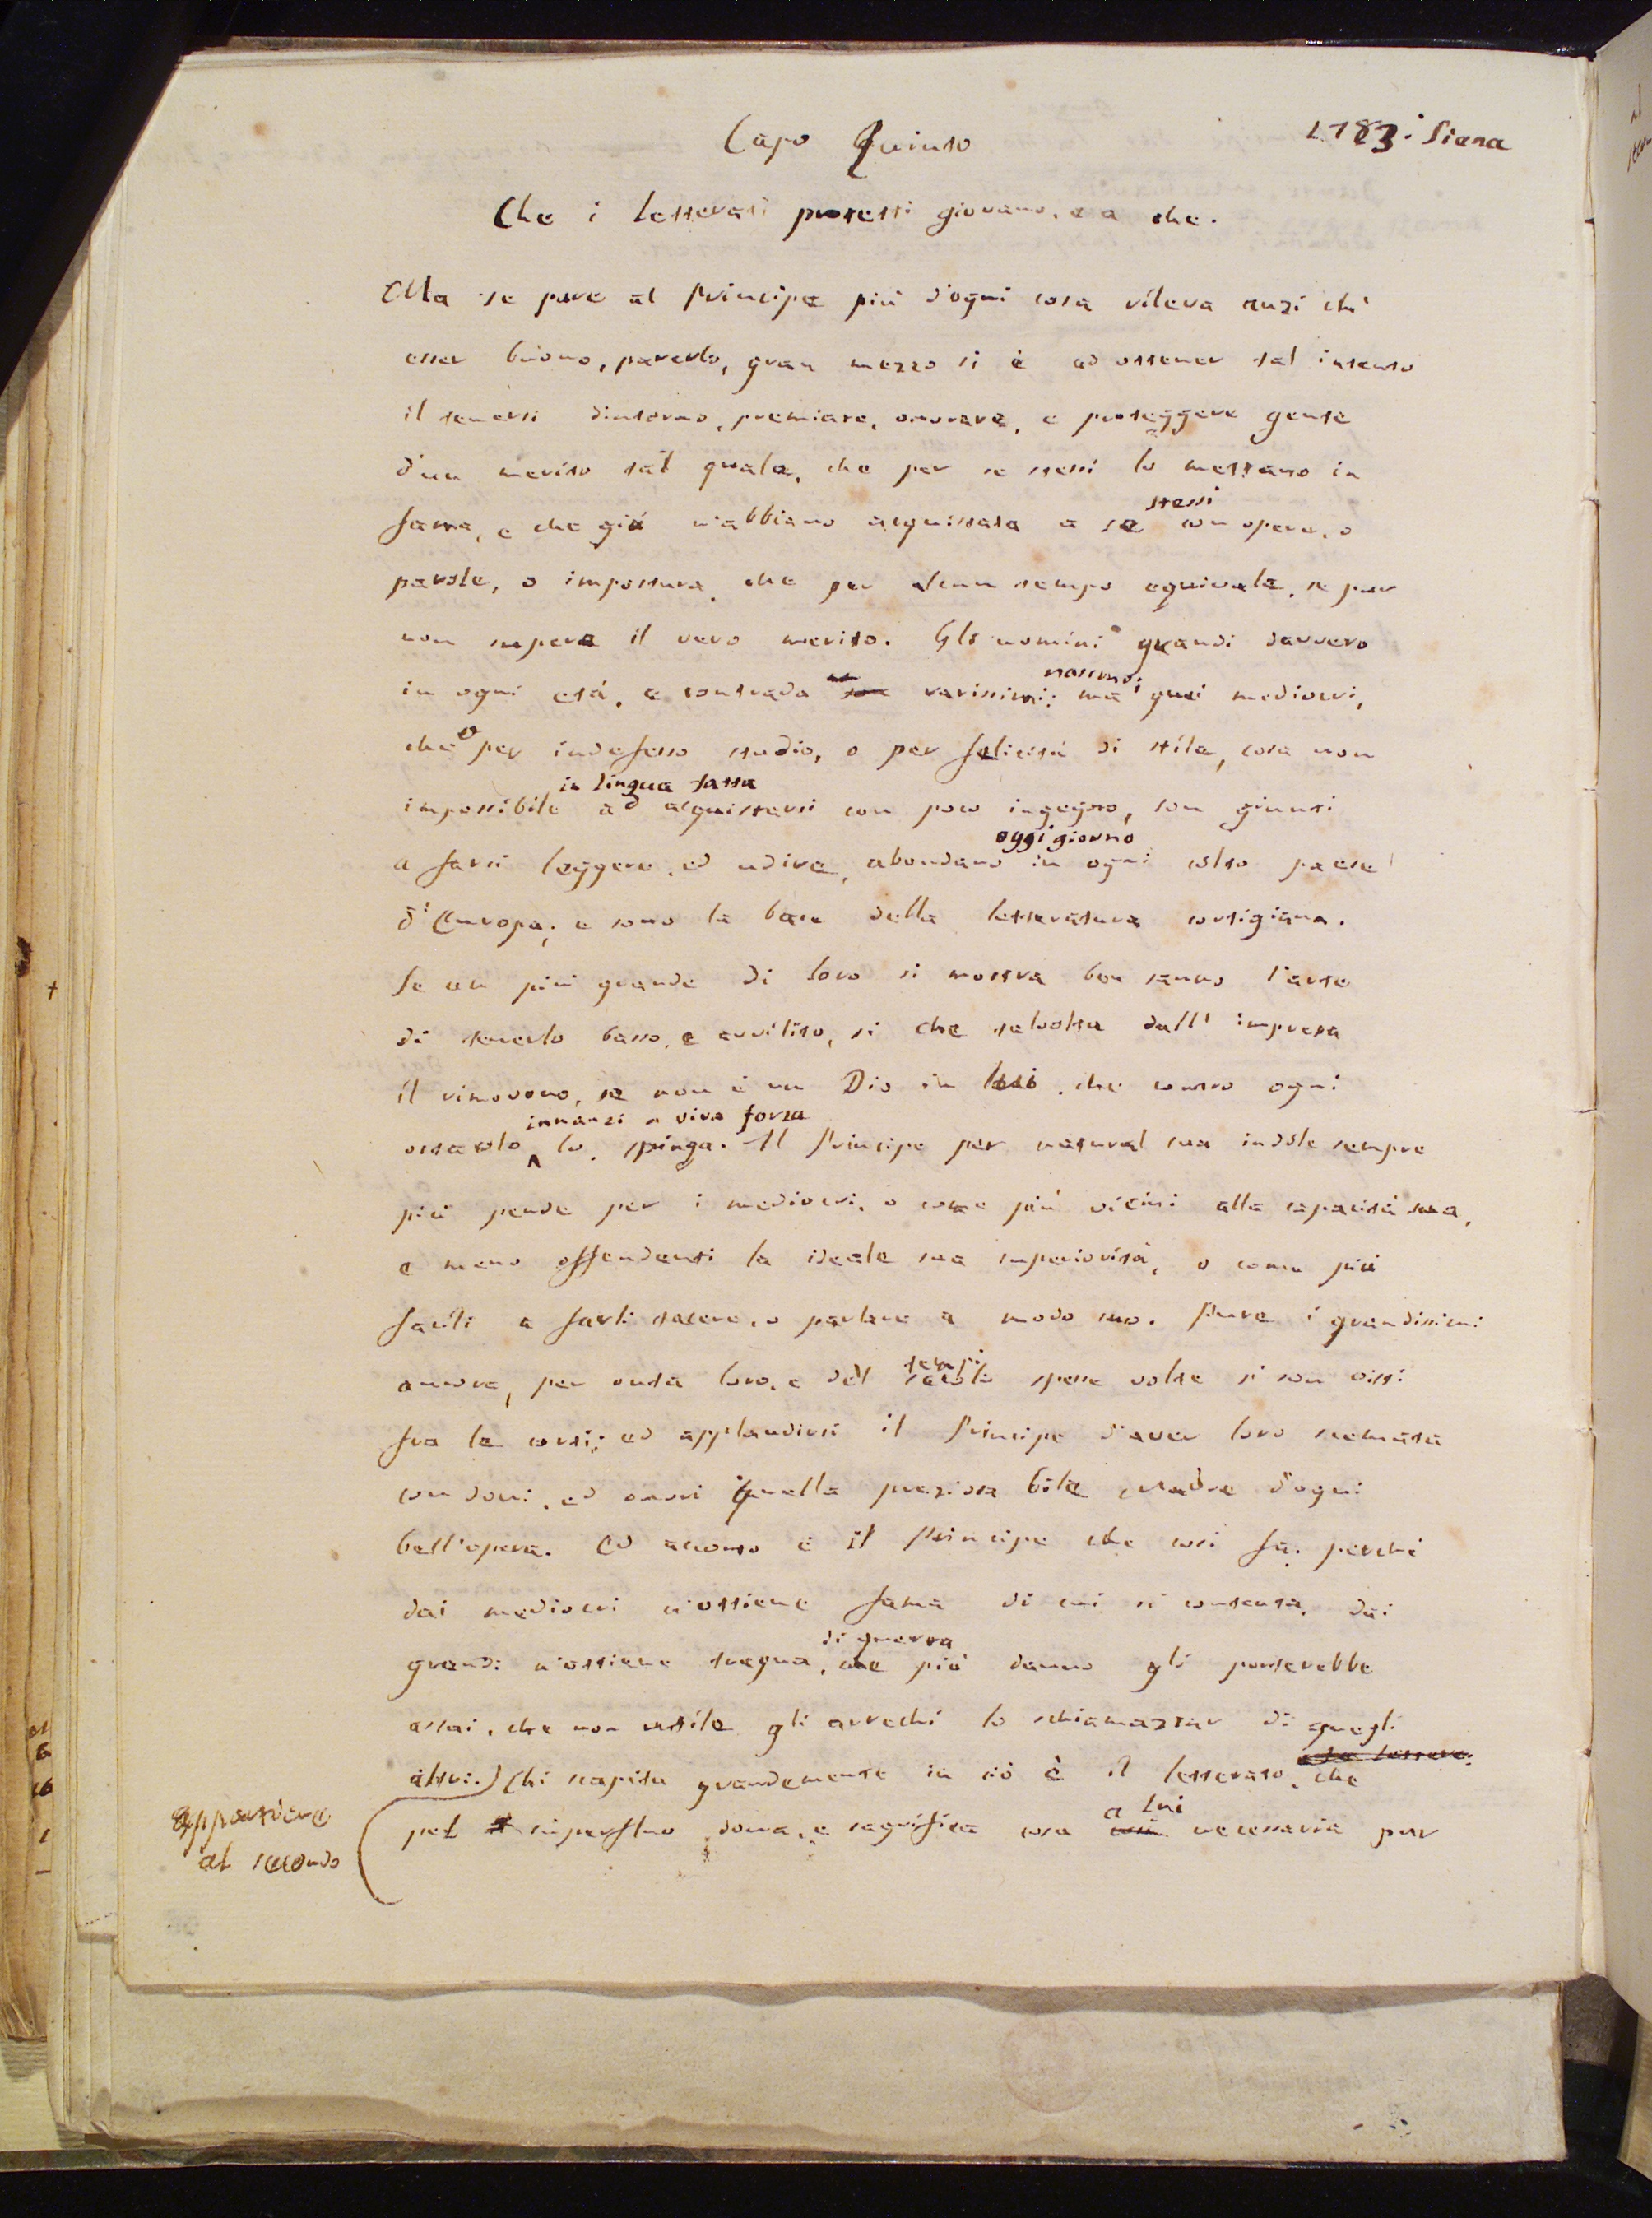 1783. Siena
Capo Quinto
Che i letterati protetti giovano, e a che.
Ma se pure al Principe più d'ogni cosa rileva anzi ch'
esser buono, parerlo, gran mezzo si è ad ottener tal intento
il tenersi dintorno, premiare, onorare, e proteggere gente
d'un merito tal quale, che per se stessi lo mettano in
stessi
fama, e che già n'abbiano acquistata a se con opere, o
parole, o impostura, che per alcun tempo equivale, se pur
non supera il vero merito. Gli uomini grandi davvero
nascono;
in ogni età, e contrada rarissimi: ma quei mediocri,
che o per indefesso studio, o per felicità di stile, cosa non
in lingua fatta
impossibile ad acquistarsi con poco ingegno, son giunti
oggi giorno
a farsi leggere, ed udire, abondano in ogni colto paese
d'Europa; e sono la base della letteratura cortigiana.
Se un più grande di loro si mostra ben sanno l'arte
di tenerlo basso, e avvilito, si che talvolta dall' impresa
il rimovono, se non è un Dio in lui, che contro ogni
innanzi a viva forza
ostacolo lo spinga. Il Principe per natural sua indole sempre
più pende per i mediocri, o come più vicini alla capacità sua,
e meno offendenti la ideale sua superiorità, o come più
facili a farli tacere, o parlare a modo suo. Pure i grandissimi
tempi
ancora, per onta loro, e del secolo spesse volte si son visti
fra le corti; ed applaudirsi il Principe d'aver loro scemata
con doni, ed onori quella preziosa bile madre d'ogni
bell'opera. Ed accorto è il Principe che così fa; perchè
dai mediocri n'ottiene fama di cui si contenta, dai
di guerra
grandi n'ottiene tregua, che più danno gli porterebbe
assai, che non utile gli arrechi lo schiamazzar di quegli
altri.) Chi scapita grandemente in ciò è il letterato, che
a lui
pel superfluo dona, e sagrifica cosa necessaria per
appartiene
al secondo